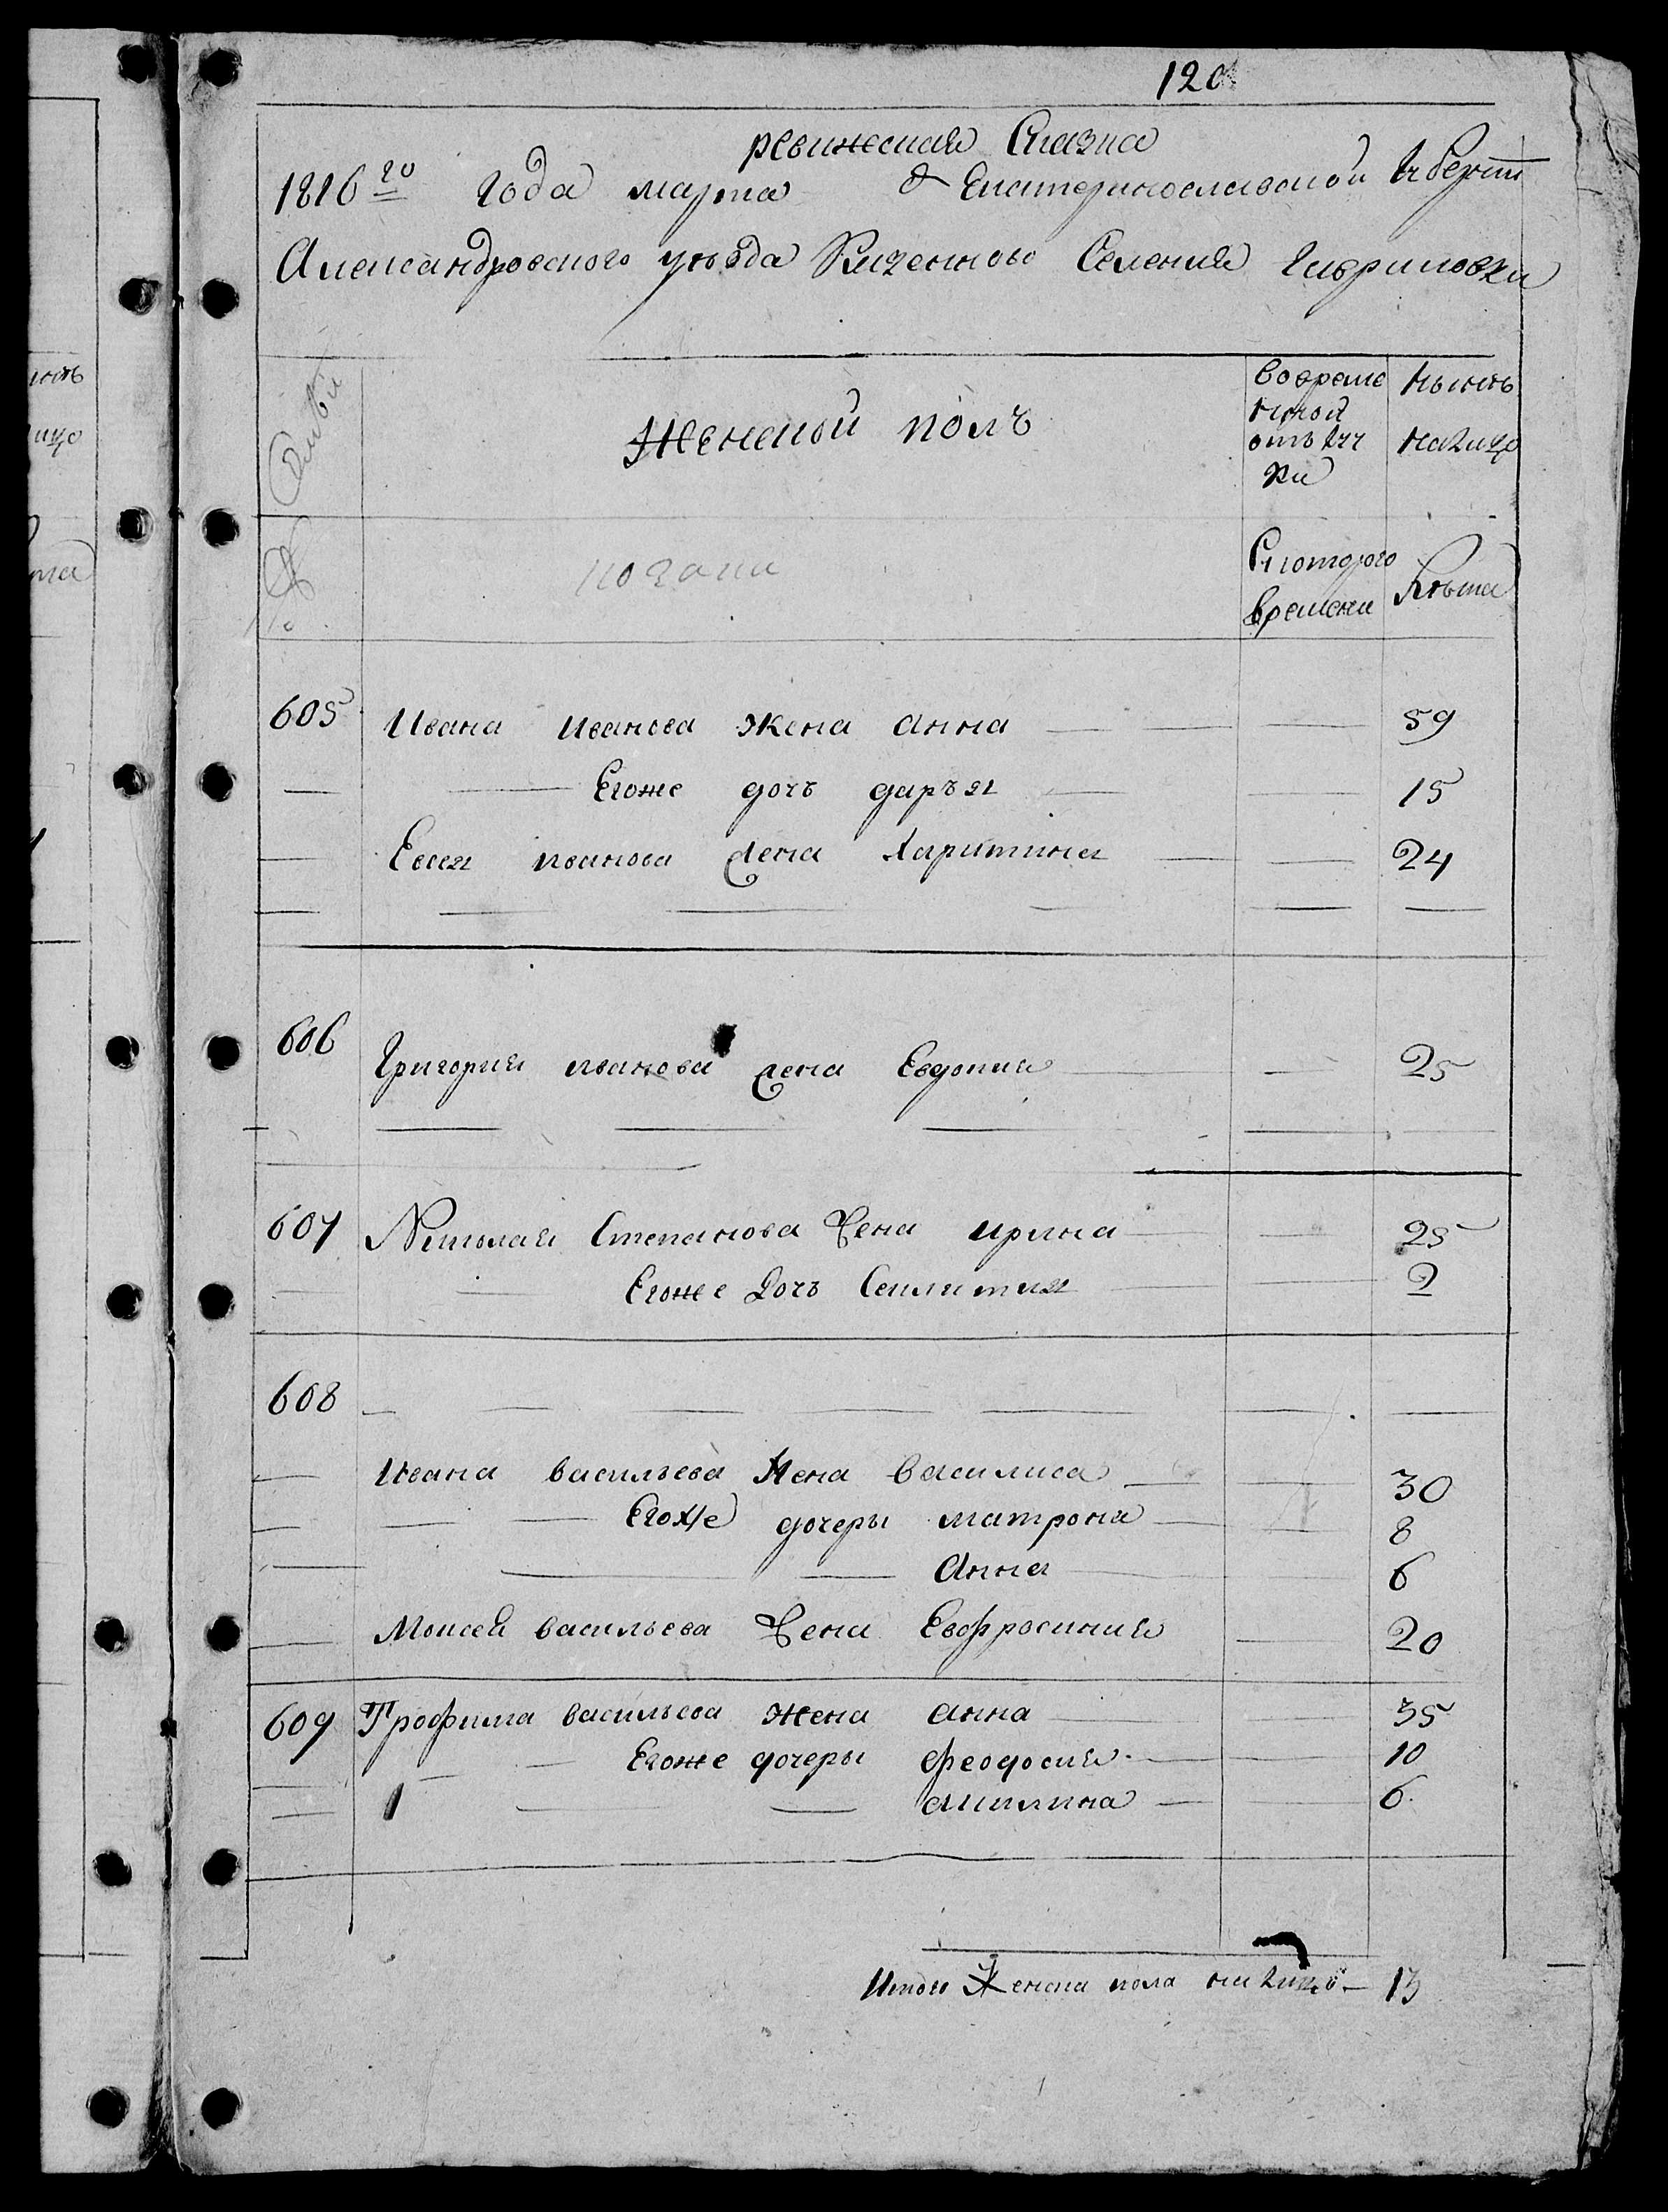 120
ревижская Сказка
1816го года марта Екатеринославской Губерни
Александровского уезда Казенного Селения Гавриловки
Семьи
Женской полъ
во време
нной
отълуч
ки
ныне
налицо
№
казаки
Скоторого
времени
Лѣта
605 Ивана Иванова жена анна 59
Егоже дочь даръя 15
Евсея иванова жена Харитина 24
606 Григория иванова жена Евдокия 25
607 Николая Степанова жена ирина 25
Егоже Дочъ Секлития 2
608
Ивана васильева жена Василиса 30
Егоже дочеры матрона 8
Анна 6
Моисея васильева жена Евфросиния 20
609 Трофима васильева жена анна 35
Егоже дочеры феодосия 10
акилина 6
Итого Женска пола на лицо 13